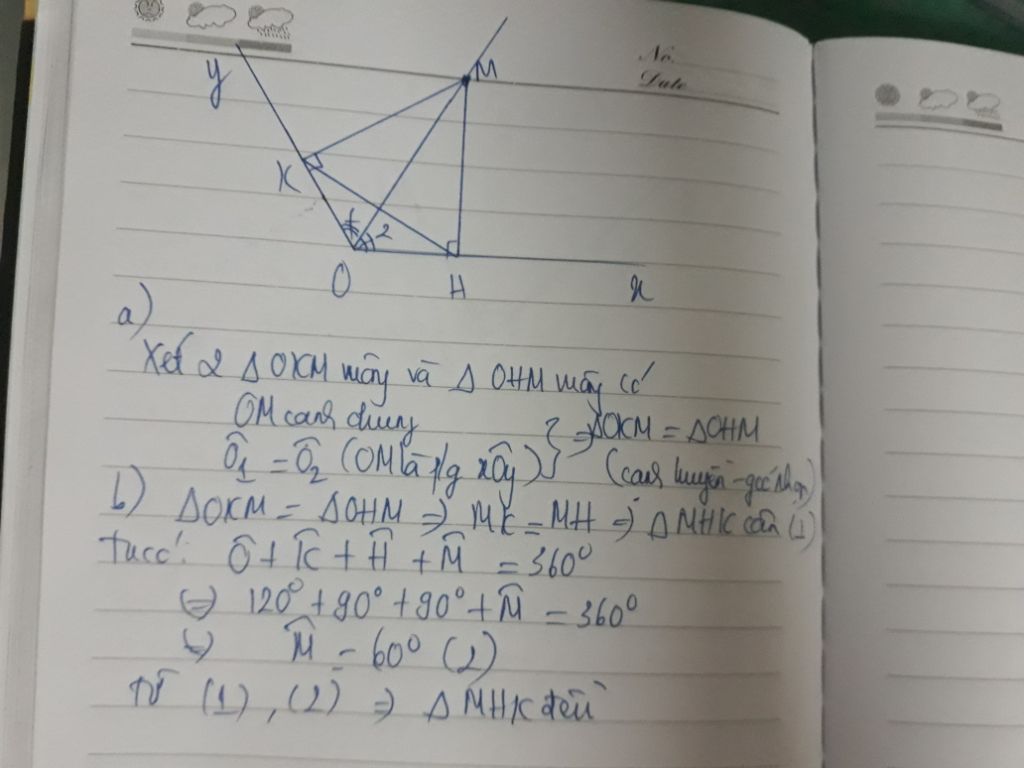 No.
Date
y
M
K
1
2
O
H
x
a)
Xét 2 Δ OKM vuông và Δ OHM vuông có
OM cạnh chung
Ô1 = Ô2 (OM là p/g xÔy) } => ΔOKM = ΔOHM
(cạnh huyền - góc nhọn)
b) ΔOKM = ΔOHM => MK = MH => Δ MHK cân (1)
Ta có: Ô + K̂ + Ĥ + M̂ = 360°
(=) 120° + 90° + 90° + M̂ = 360°
M̂ = 60° (2)
Từ (1), (2) => Δ MHK đều